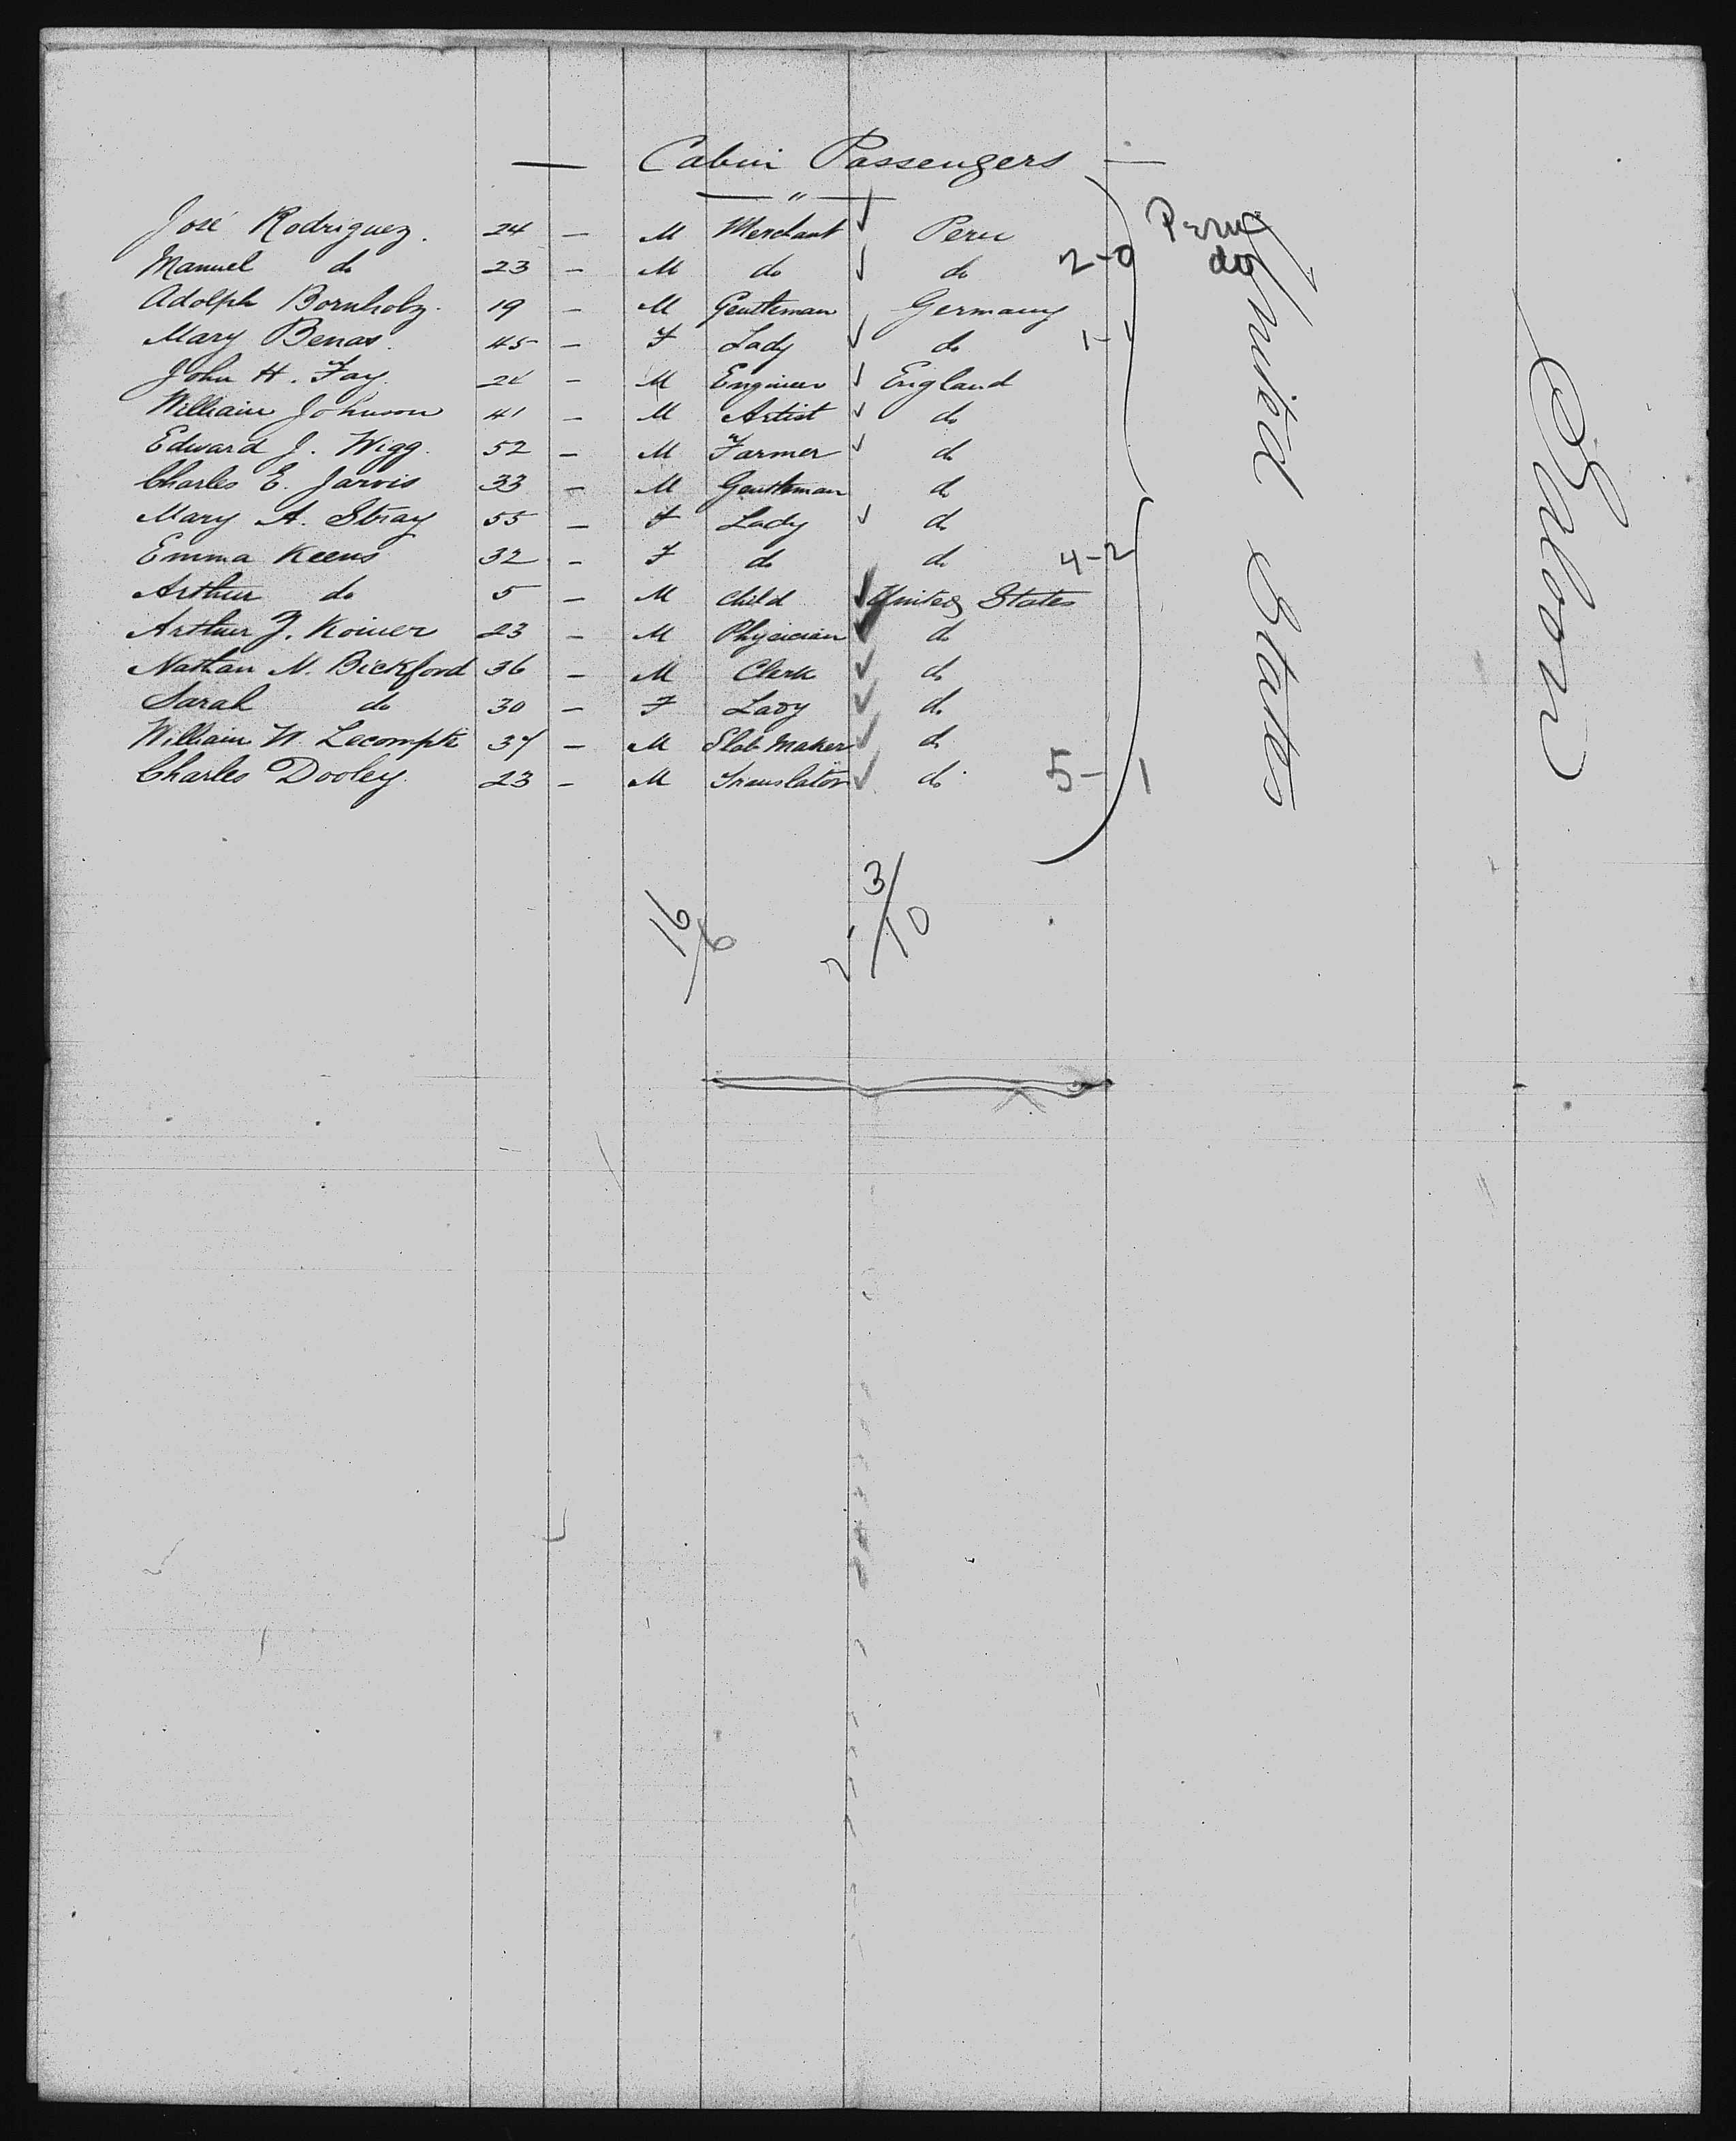 — Cabin Passengers —
— " —
José Rodriguez. 24 — M Merchant ✓ Peru
Manuel do 23 — M do ✓ do 2-0
Adolph Bornholz. 19 — M Gentleman Germany
Mary Benas. 45 — F Lady ✓ do 1-1
John H. Fay. 24 — M Engineer ✓ England
William Johnson 41 — M Artist ✓ do
Edward J. Wigg. 52 — M Farmer ✓ do
Charles E. Jarvis 33 — M Gentleman do
Mary A. Stray 55 — F Lady ✓ do
Emma Keens 32 — F do do 4-2
Arthur do 5 — M Child ✓ United States
Arthur J. Koiner 23 — M Physician ✓ do
Nathan M. Bickford 36 — M Clerk ✓ do
Sarah do 30 — F Lady ✓ do
William W. Lecompte 37 — M ✓ do
Charles Dooley. 23 — M Translator ✓ do 5-1
Peru
do
United States
Saloon
16/6
3/10
2